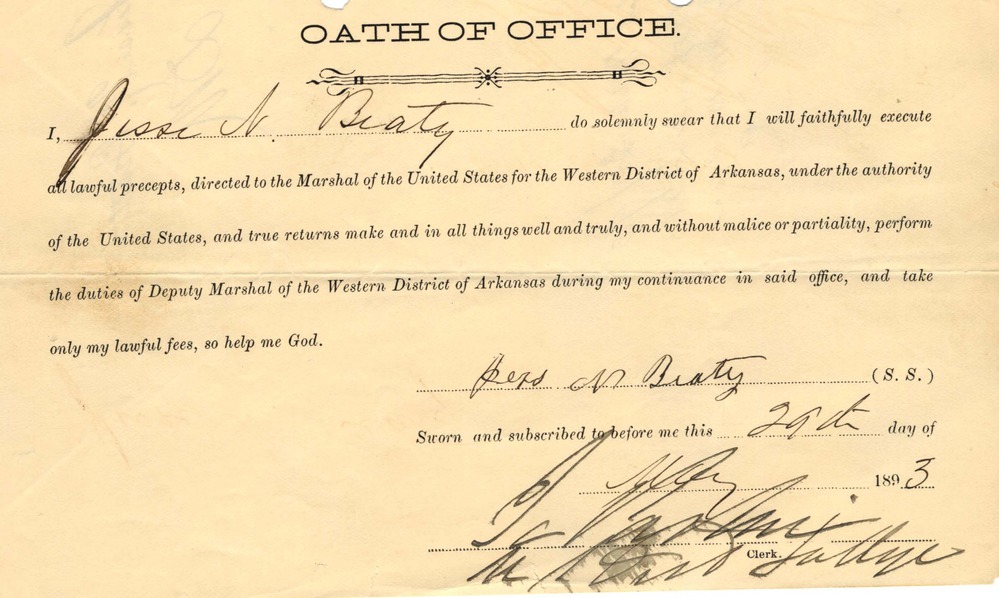 OATH OF OFFICE.
I, Jesse N. Beaty do solemnly swear that I will faithfully execute
all lawful precepts, directed to the Marshal of the United States for the Western District of Arkansas, under the authority
of the United States, and true returns make and in all things well and truly, and without malice or partiality, perform
the duties of Deputy Marshal of the Western District of Arkansas during my continuance in said office, and take
only my lawful fees, so help me God.
N Beaty (S. S.)
Sworn and subscribed to before me this 29th day of
May 1893
Clerk.